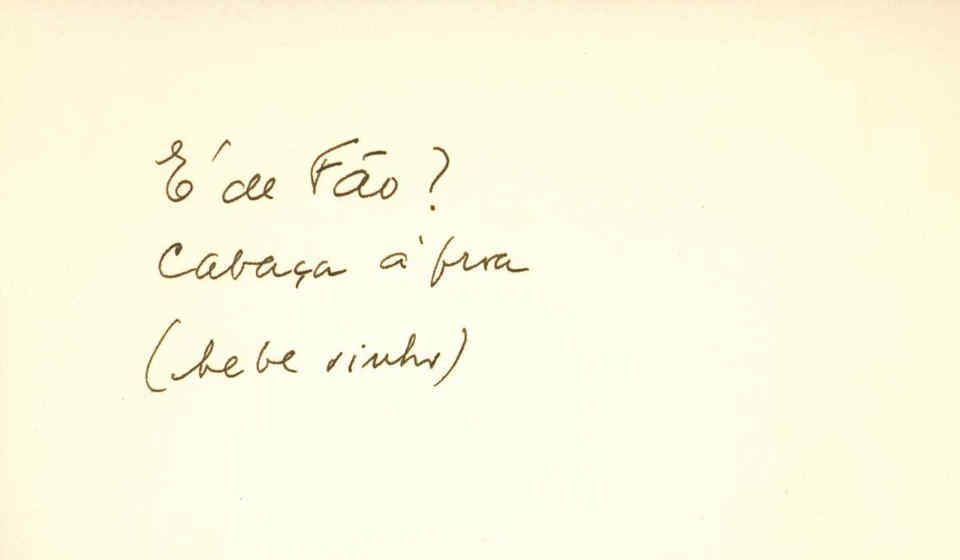 É de Fão?
Cabaça à proa
(bebe vinho)